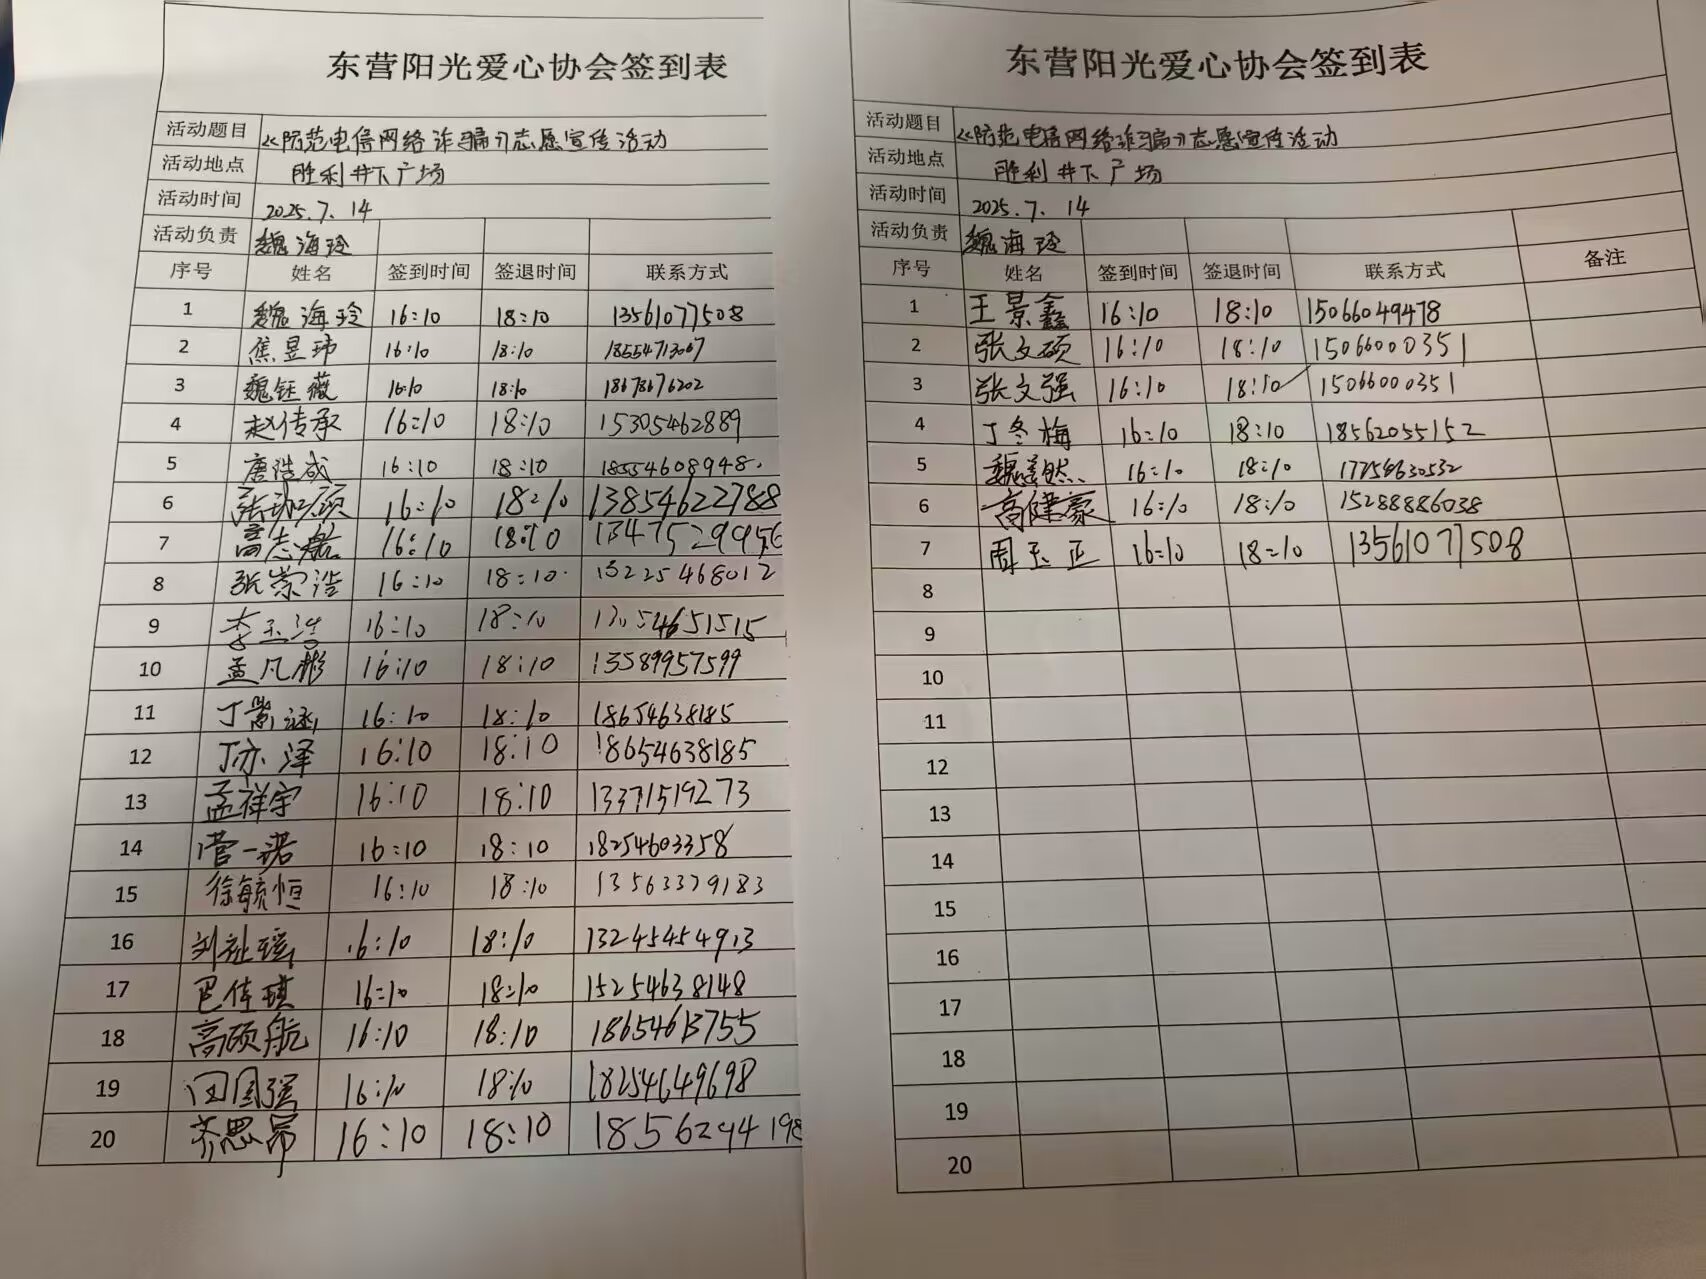 东营阳光爱心协会签到表
活动题目 《防范电信网络诈骗》志愿宣传活动
活动地点 胜利井下广场
活动时间 2025.7.14
活动负责 魏海玲
序号 姓名 签到时间 签退时间 联系方式
1 魏海玲 16:10 18:10 13561077508
2 焦昱玮 16:10 18:10 18554713067
3 魏钰薇 16:10 18:10 18678676202
4 赵传承 16:10 18:10 15305462889
5 唐浩成 16:10 18:10 18554608948.
6 16:10 18:10 13854622788
7 高志航 16:10 18:10
8 张崇浩 16:10 18:10 13225468012
9 李玉浩 16:10 18:10
10 孟凡彬 16:10 18:10 13589957599
11 16:10 18:10 18654638185
12 丁亦泽 16:10 18:10 18654638185
13 孟祥宇 16:10 18:10 13371519273
14 菅一诺 16:10 18:10 18254603358
15 徐毓恒 16:10 18:10 13563379183
16 16:10 18:10 13245454913
17 巴佳琪 16:10 18:10 15254638148
18 高硕航 16:10 18:10
19 田国强 16:10 18:10 18254649698
20 齐思昂 16:10 18:10
东营阳光爱心协会签到表
活动题目 《防范电信网络诈骗》志愿宣传活动
活动地点 胜利井下广场
活动时间 2025.7.14
活动负责 魏海玲
序号 姓名 签到时间 签退时间 联系方式 备注
1 王景鑫 16:10 18:10 15066049478
2 张文硕 16:10 18:10 15066000351
3 张文强 16:10 18:10 15066000351
4 丁冬梅 16:10 18:10 18562055152
5 16:10 18:10 17758630532
6 高健豪 16:10 18:10 15288886038
7 周玉正 16:10 18:10 13561077508
8
9
10
11
12
13
14
15
16
17
18
19
20